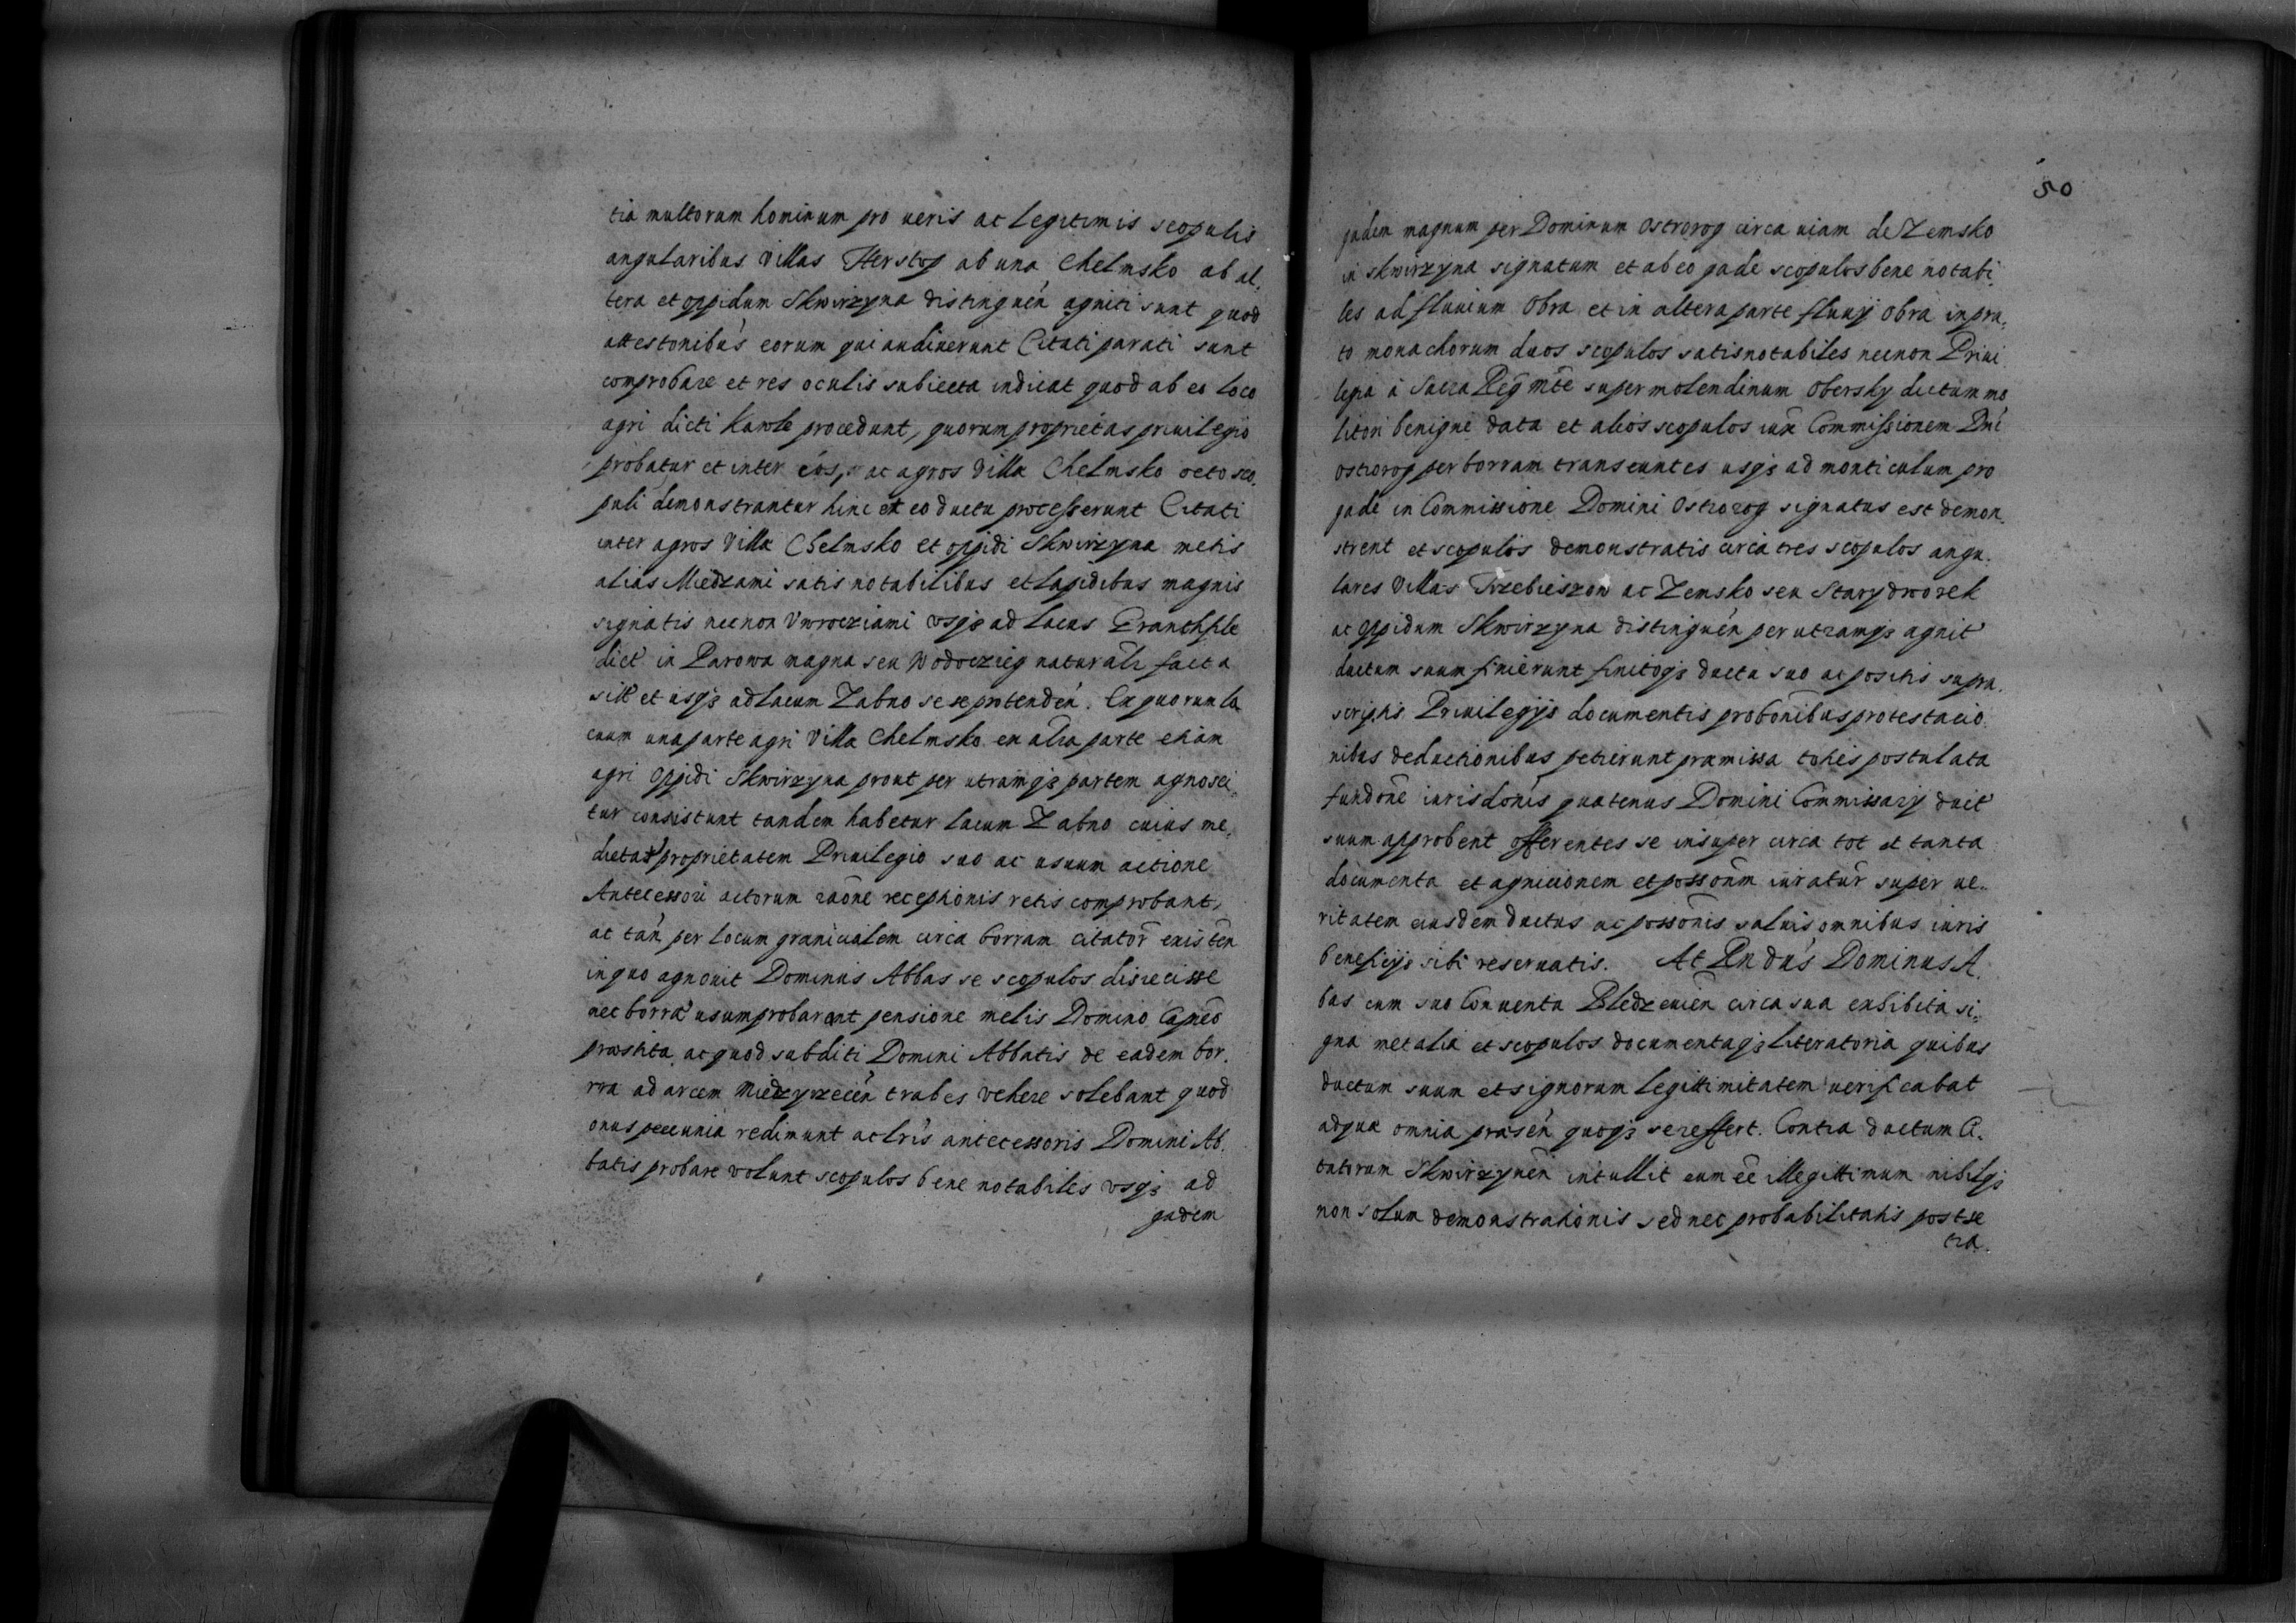 tia multorum hominum pro ueris ac legitimis scopulis
angularibus villas Herstop ab una Chelmsko ab al,
tera et oppidum Skwirzyna distinguen̄ agniti sunt quod
attestonibus eorum qui audiuerunt Citati parati sunt
comprobare et res oculis subiecta indicat quod ab eo loco
agri dicti Kawle procedunt, quorum proprietas priuilegio
probatur et inter eos, ac agros villæ Chelmsko octo sco,
puli demonstrantur hinc et eo ductu processerunt Citati
inter agros villæ Chelmsko et oppidi Skwirzyna metis
alias Miedzami satis notabilibus et lapidibus magnis
signatis necnon Vwroeziami vsq3 ad lacus
dict in Parowa magna seu Wodoczieg naturali facta
sitt et usq3 ad lacum Zabno sese protenden̄. Ex quorum la
cuum una parte agri villæ Chelmsko ex alia parte etiam
agri oppidi Skwirzyna prout per utramq3 partem agnosci,
tur consistunt tandem habetur lacum Zabno cuius me,
dietat proprietatem Priuilegio suo ac usuum actione
Antecessori actorum raōne receptionis retis comprobant,
ac tan̄ per locum granicialem circa borram citator̄ existen̄
in quo agnouit Dominus Abbas se scopulos disiecisse
nec borræ usum probarent pensione melis Domino Capnēo
præstita ac quod subditi Domini Abbatis de eadem bor,
rra ad arcem Miedzyrzecen̄ trabes vehere solebant quod
onus peccunia redimunt ac lrīs antecessoris Domini Ab,
batis probare volunt scopulos bene notabiles vsq3 ad
gadem
50
gadem magnum per Dominum Ostrorog circa uiam de Zemsko
in Skwirzyna signatum et ab eo gade scopulos bene notabi,
les ad fluuium Obra et in altera parte fluuij Obra in pra,
to monachorum duos scopulos satis notabiles necnon Priui
legia à Sacra Reg mt̄e super molendinum Obersky dictum mo
litori benigne data et alios scopulos iux̄ Commissionem Dni
Ostrorog per borram transeuntes usq3 ad monticulum pro
gade in Commissione Domini Ostrorog signatus est demon,
strent et scopulis demonstratis circa tres scopulos angu,
lares villas Trzebieszow ac Zemsko seu Starydworek
ac oppidum Skwirzyna distinguen̄ per utramq3 agnit
ductum suum finierunt finitoq3 ductu suo ac positis supra,
scriptis Priuilegijs documentis probonibus protestacio
nibus deductionibus petierunt præmissa toties postulata
fundōne iurisdōnis quatenus Domini Commissarij duct
suum approbent offerentes se insuper circa tot et tanta
documenta et agnicionem et possōnm iuratur̄ super ue,
ritatem eiusdem ductus ac possōnis saluis omnibus iuris
beneficijs sibi reseruatis. At Rn̄dus Dominus A,
bas cum suo Conuentu Bledzeuien̄ circa sua exhibita si,
gna metalia et scopulos documentaq3 literatoria quibus
ductum suum et signorum legittimitatem uerificabat
ad quæ omnia præsen̄ quoq3 se reffert. Contra ductum Ci,
tatorum Skwirzynen̄ intullit eum ēe illegittimum nihilq3
non solum demonstrationis sed nec probabilitatis post se
tra.